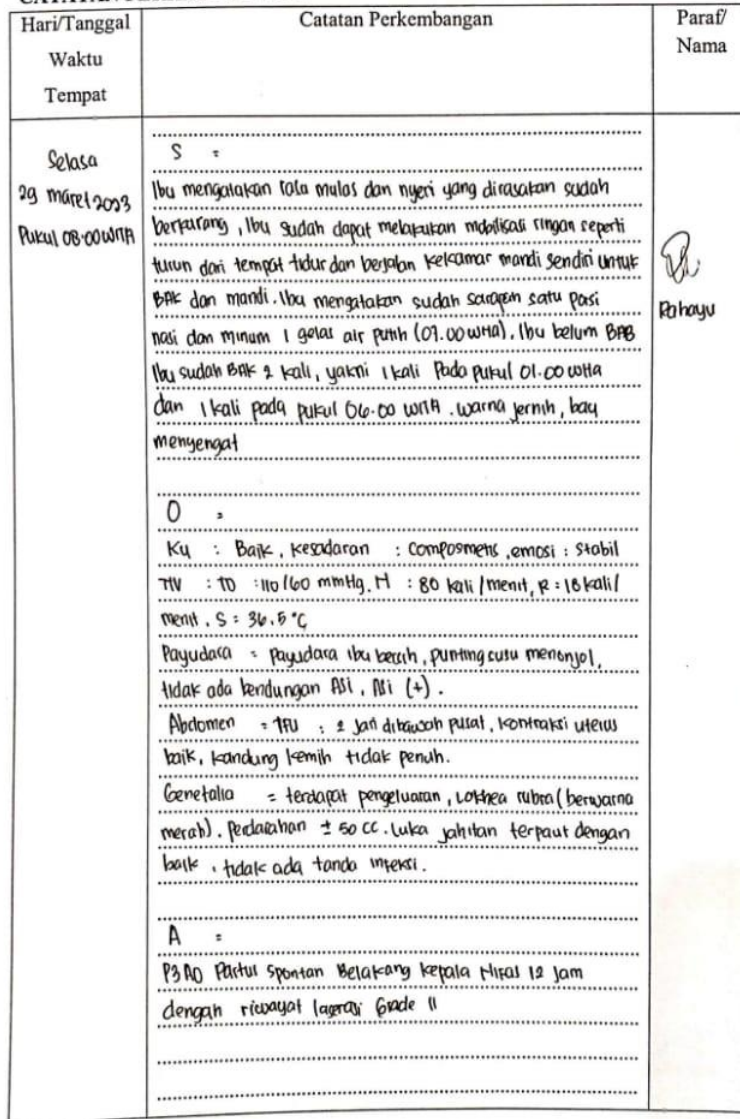 Hari/Tanggal
Waktu
Tempat
Catatan Perkembangan
Paraf/
Nama
Selasa
29 maret 2023
Pukul 08.00 WITA
S :
Ibu mengatakan rasa mulas dan nyeri yang dirasakan sudah
berkurang, Ibu sudah dapat melakukan mobilisasi ringan seperti
turun dari tempat tidur dan berjalan kekamar mandi sendiri untuk
BAK dan mandi. Ibu mengatakan sudah sarapan satu porsi
nasi dan minum 1 gelas air putih (07.00 WITA). Ibu belum BAB
Ibu sudah BAK 2 kali, yakni 1 kali Pada pukul 01.00 WITA
dan 1 kali pada pukul 06.00 WITA. warna jernih, bau
menyengat
Rahayu
O :
Ku : Baik, kesadaran : Composmetis, emosi : Stabil
TTV : TD : 110/60 mmHg. N : 80 kali/menit, R : 18 kali/
menit. S : 36.5 °C
Payudara = payudara ibu bersih, punting susu menonjol,
tidak ada bendungan ASi, ASi (+).
Abdomen = TFU : 2 jari dibawah pusat, kontraksi uterus
baik, kandung kemih tidak penuh.
Genetalia = terdapat pengeluaran, Lokhea rubra (berwarna
merah). Perdarahan ± 50 cc. Luka jahitan terpaut dengan
baik, tidak ada tanda infeksi.
A :
P3A0 Partus Spontan Belakang kepala Nifas 12 Jam
dengan riwayat laserasi Grade II